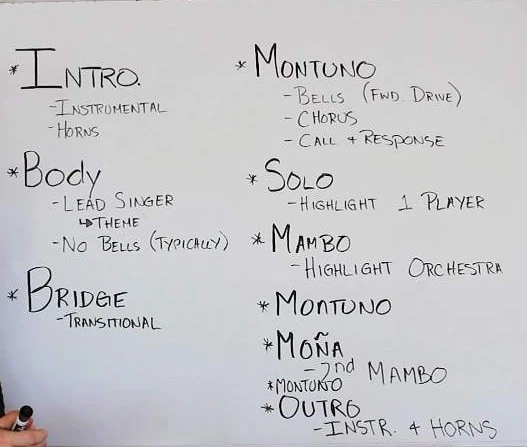 * INTRO.
- INSTRUMENTAL
- HORNS
* Body
- LEAD SINGER
↳ THEME
- NO BELLS (TYPICALLY)
* BRIDGE
- TRANSITIONAL
* MONTUNO
- BELLS (FWD. DRIVE)
- CHORUS
- CALL + RESPONSE
* SOLO
- HIGHLIGHT 1 PLAYER
* MAMBO
- HIGHLIGHT ORCHESTRA
* MONTUNO
* MOÑA
- 2nd MAMBO
* MONTUNO
* OUTRO
- INSTR. + HORNS